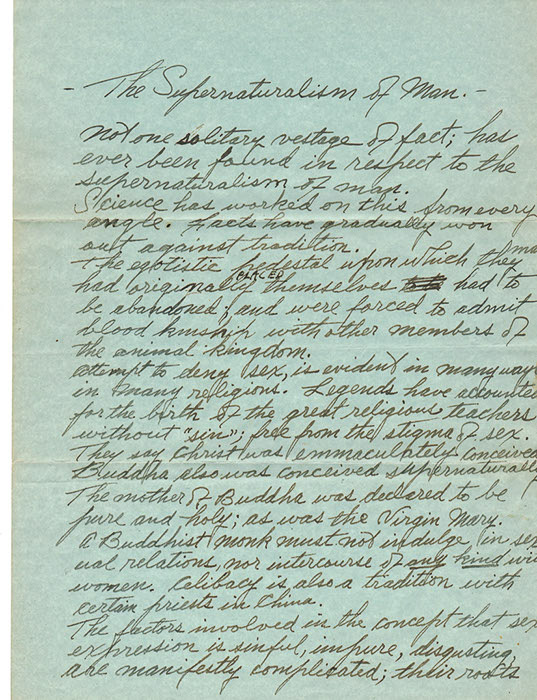 - The Supernaturalism of Man. -
Not one solitary vestage of fact; has
ever been found in respect to the
supernaturalism of man.
Science has worked on this from every
angle. Facts have gradually won
out against tradition.
The egotistic pedestal upon which they
PLACED
had originally themselves had to
be abandoned; and were forced to admit
blood kinship with other members of
the animal kingdom.
Attempt to deny sex, is evident in many way
in many religions. Legends have accounted
for the birth of the great religious teachers
without "sin"; free from the stigma of sex.
They say Christ was emmaculately conceived
Buddha also was conceived supernaturally
The mother of Buddha was declared to be
pure and holy; as was the Virgin Mary.
A Buddhist monk must not indulge in sex
ual relations, nor intercourse of any kind wi
women. Celibacy is also a tradition with
certain priests in China.
The factors involved in the concept that sex
expression is sinful, impure, disgusting;
are manifestly complicated; their roots